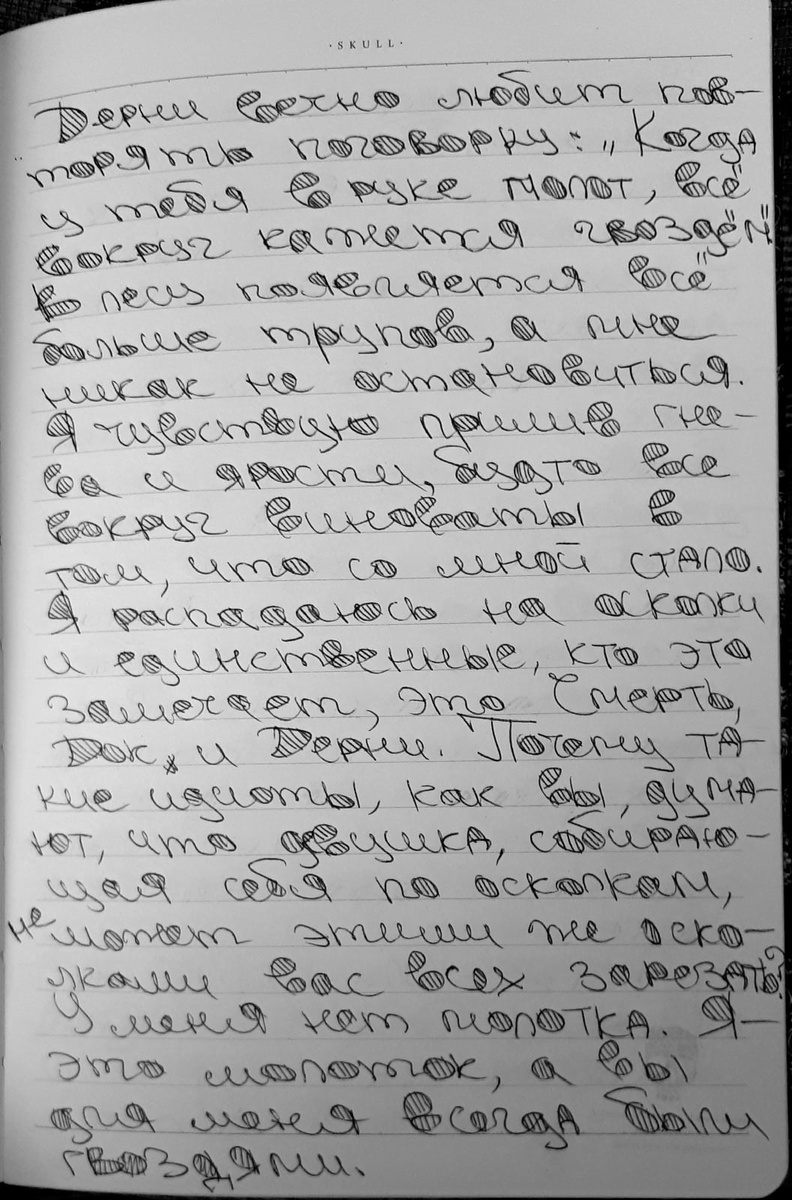 ·SKULL·
Дерни вечно любит пов-
торять поговорку: „Когда
у тебя в руке молот, всё
вокруг кажется гвоздём"
В лесу появляется всё
больше трупов, а мне
никак не остановиться.
Я чувствую прилив гне-
ва и ярости, будто все
вокруг виноваты в
том, что со мной стало.
Я распадаюсь на осколки
и единственные, кто это
замечает, это Смерть,
Док, и Дерни. Почему та-
кие идиоты, как вы, дума-
ют, что девушка, собираю-
щая себя по осколкам,
не может этими же оско-
лками вас всех зарезать?
У меня нет молотка. Я-
это молоток, а вы
для меня всегда были
гвоздями.